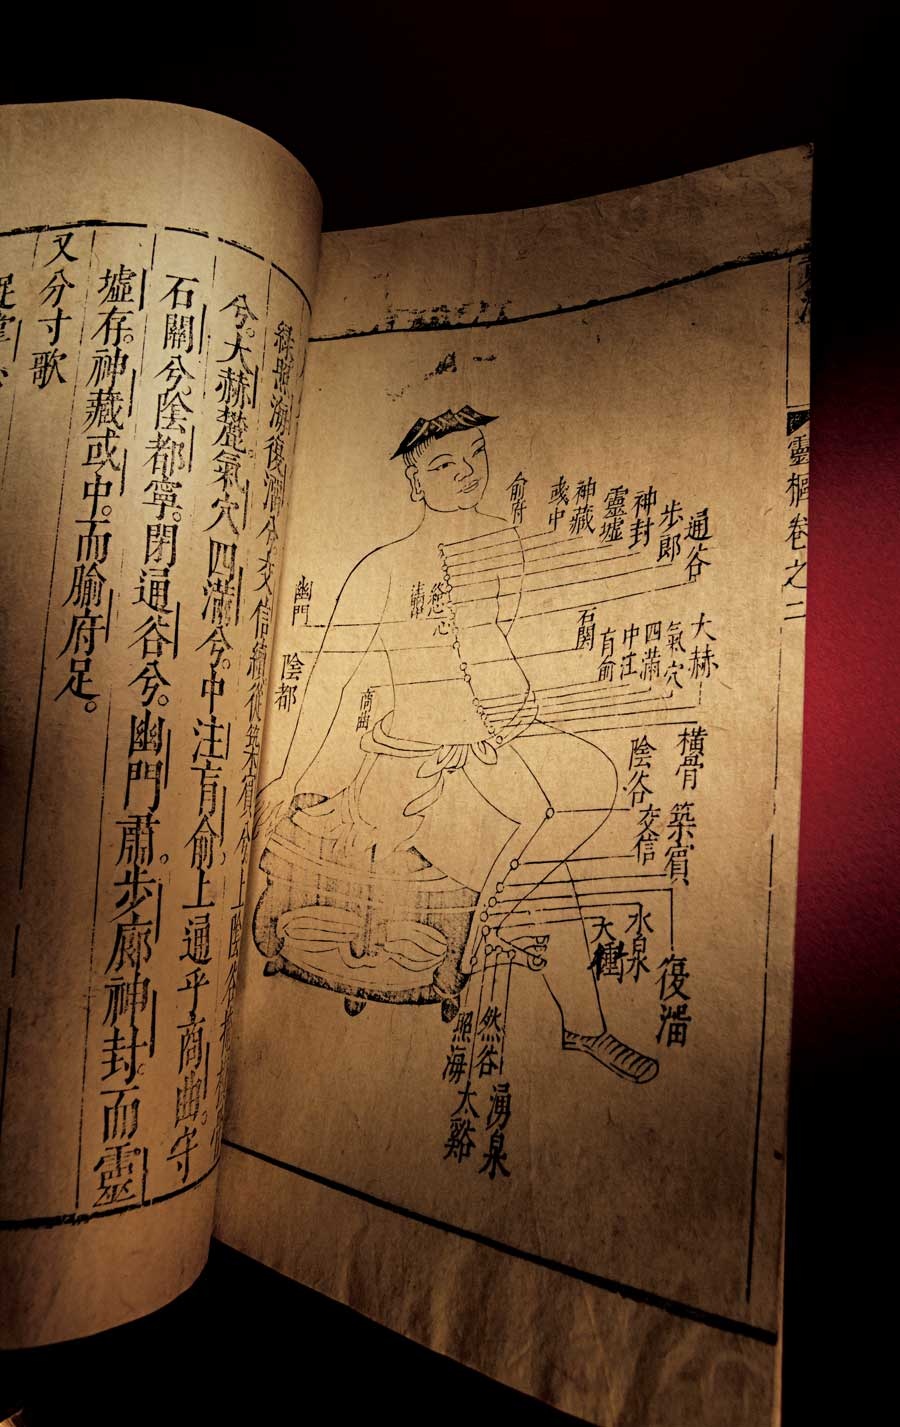 靈樞卷之二
通谷
步郎
神封
靈墟
神藏
彧中
俞府
大赫
氣穴
四滿
中注
肓俞
石關
幽門
陰都
商曲
橫骨
陰谷
築賓
交信
水泉
大衝
復溜
然谷
照海
湧泉
太谿
照海復溜兮交信續從築賓兮上陰谷
兮。大赫麓。氣穴四滿兮。中注肓俞上通乎商曲。守
石關兮。陰都寧。閉通谷兮。幽門肅。步廊神封。而靈
墟存。神藏或中。而腧府足。
又分寸歌